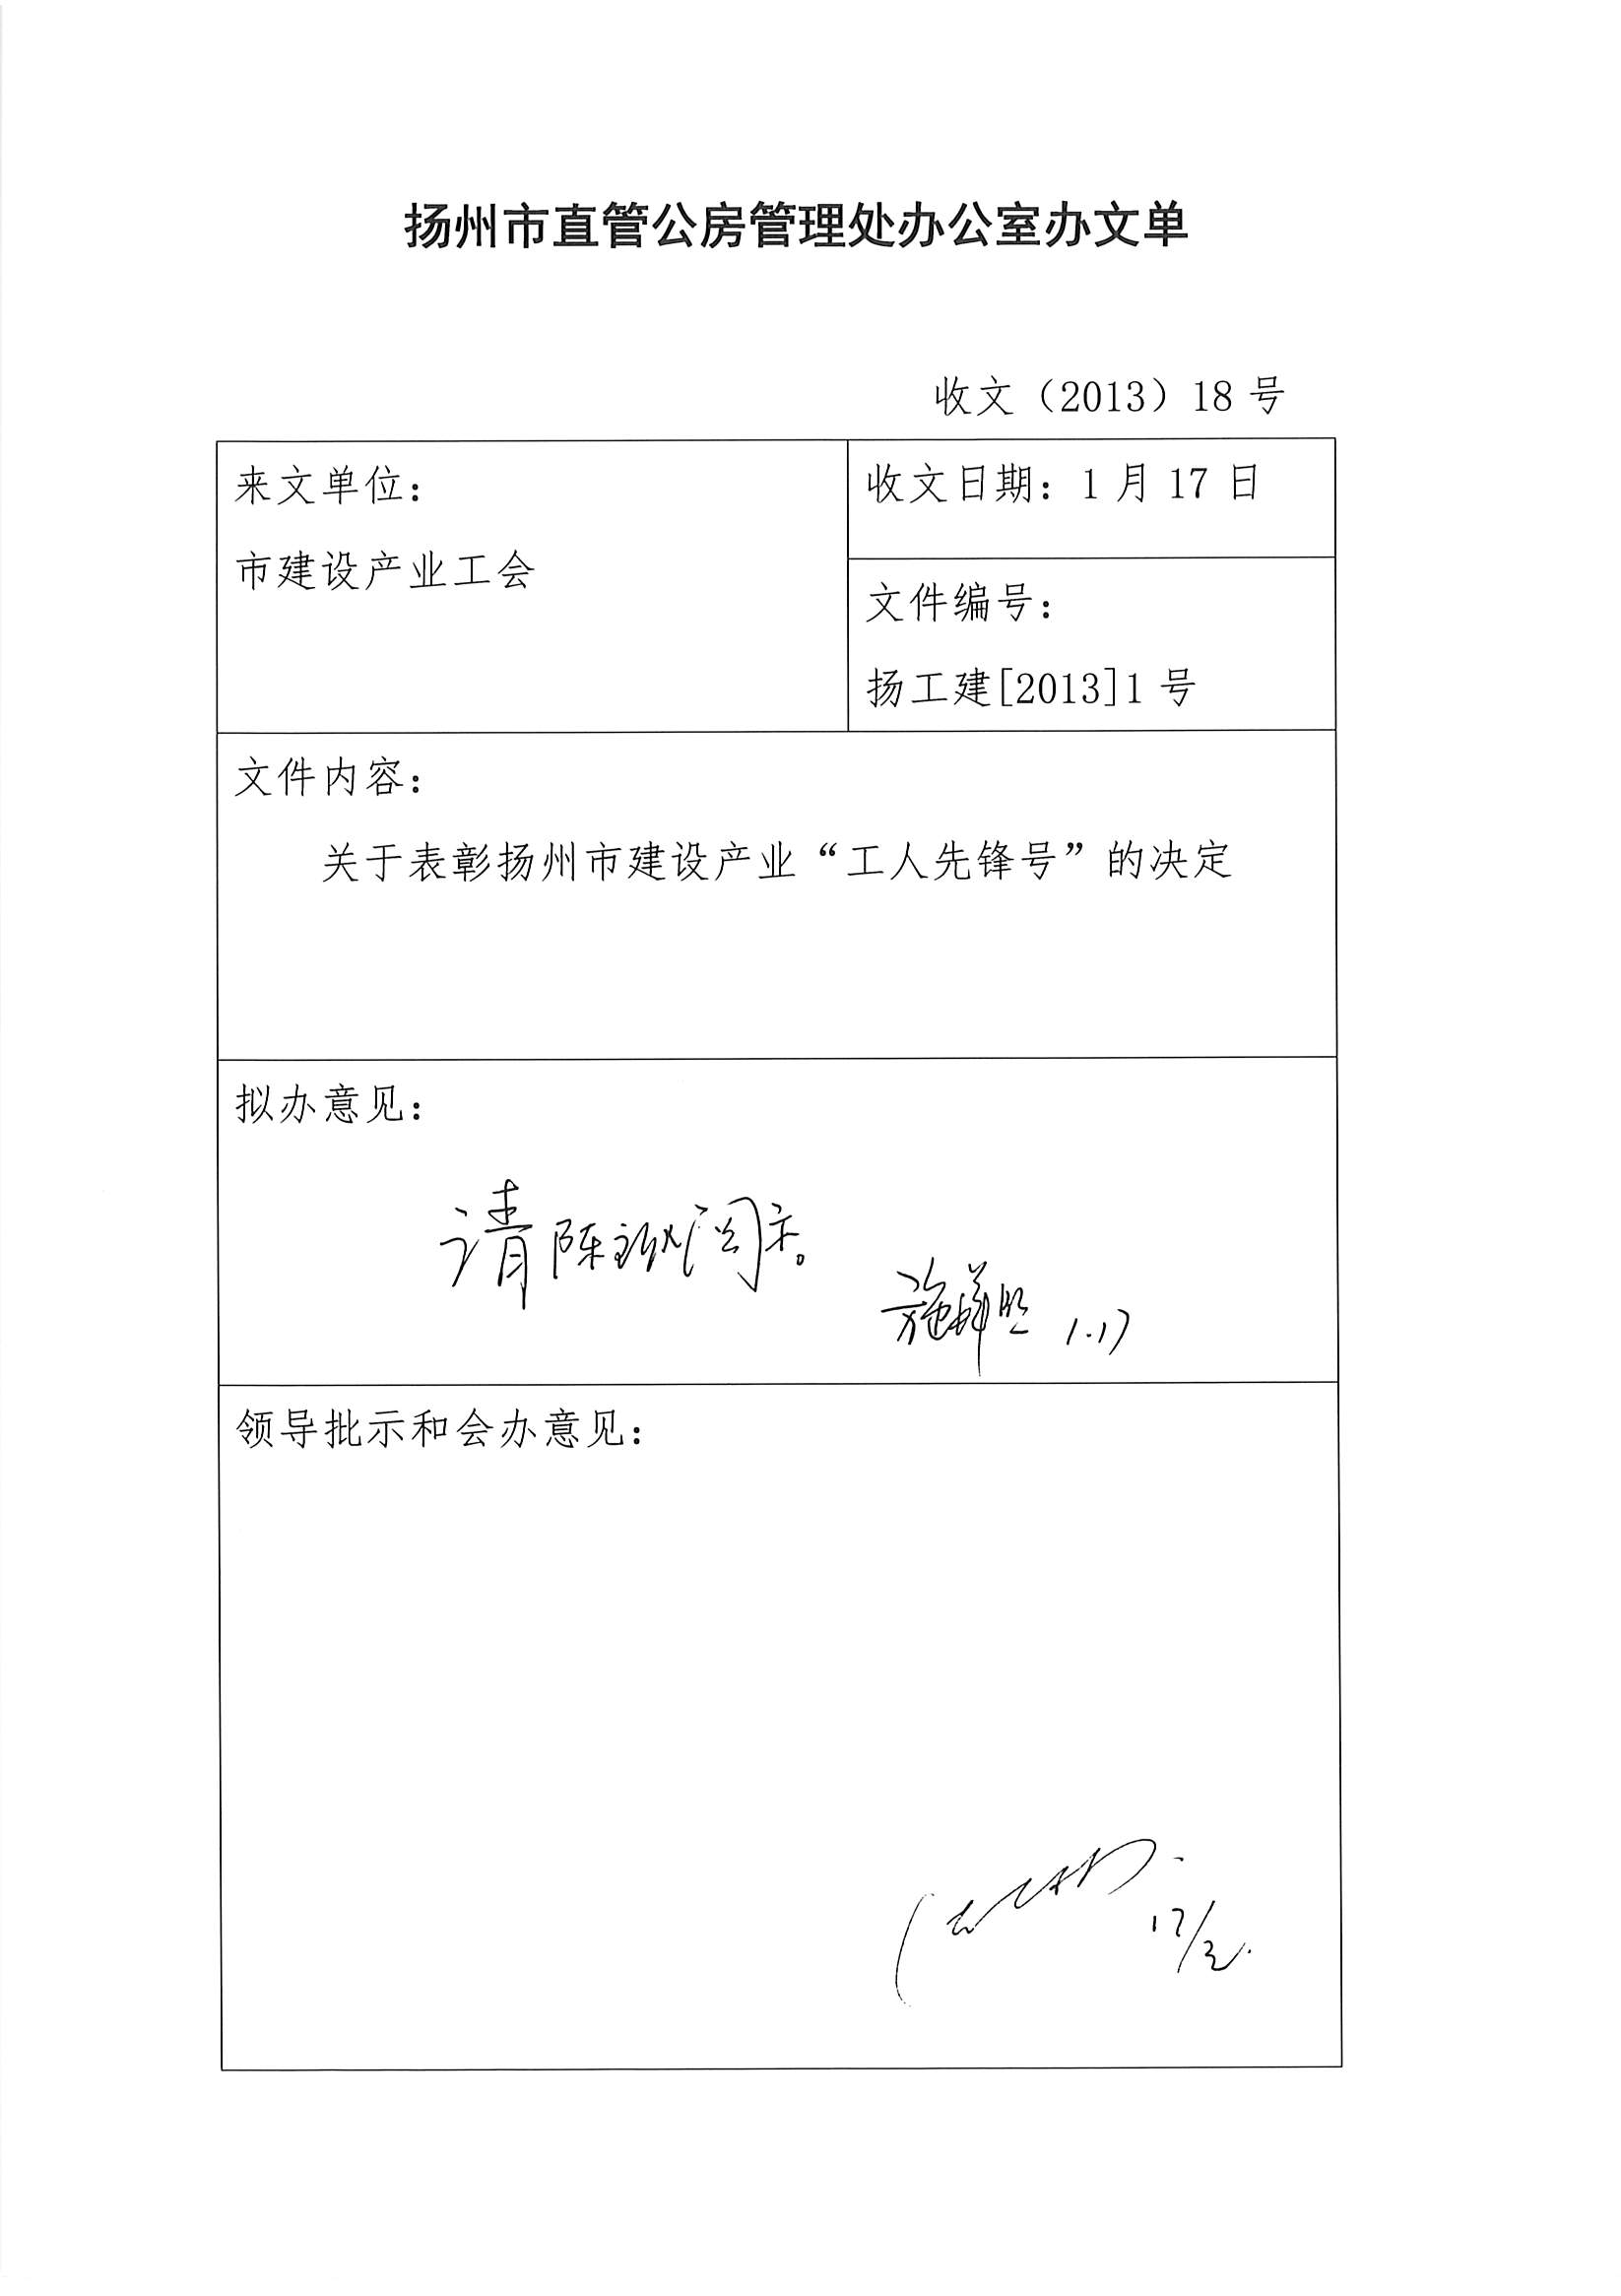 扬州市直管公房管理处办公室办文单
收文（2013）18 号
来文单位：
市建设产业工会
收文日期：1 月 17 日
文件编号：
扬工建[2013]1 号
文件内容：
关于表彰扬州市建设产业“工人先锋号”的决定
拟办意见：
请陈 阅示。
施 1.17
领导批示和会办意见：
17/